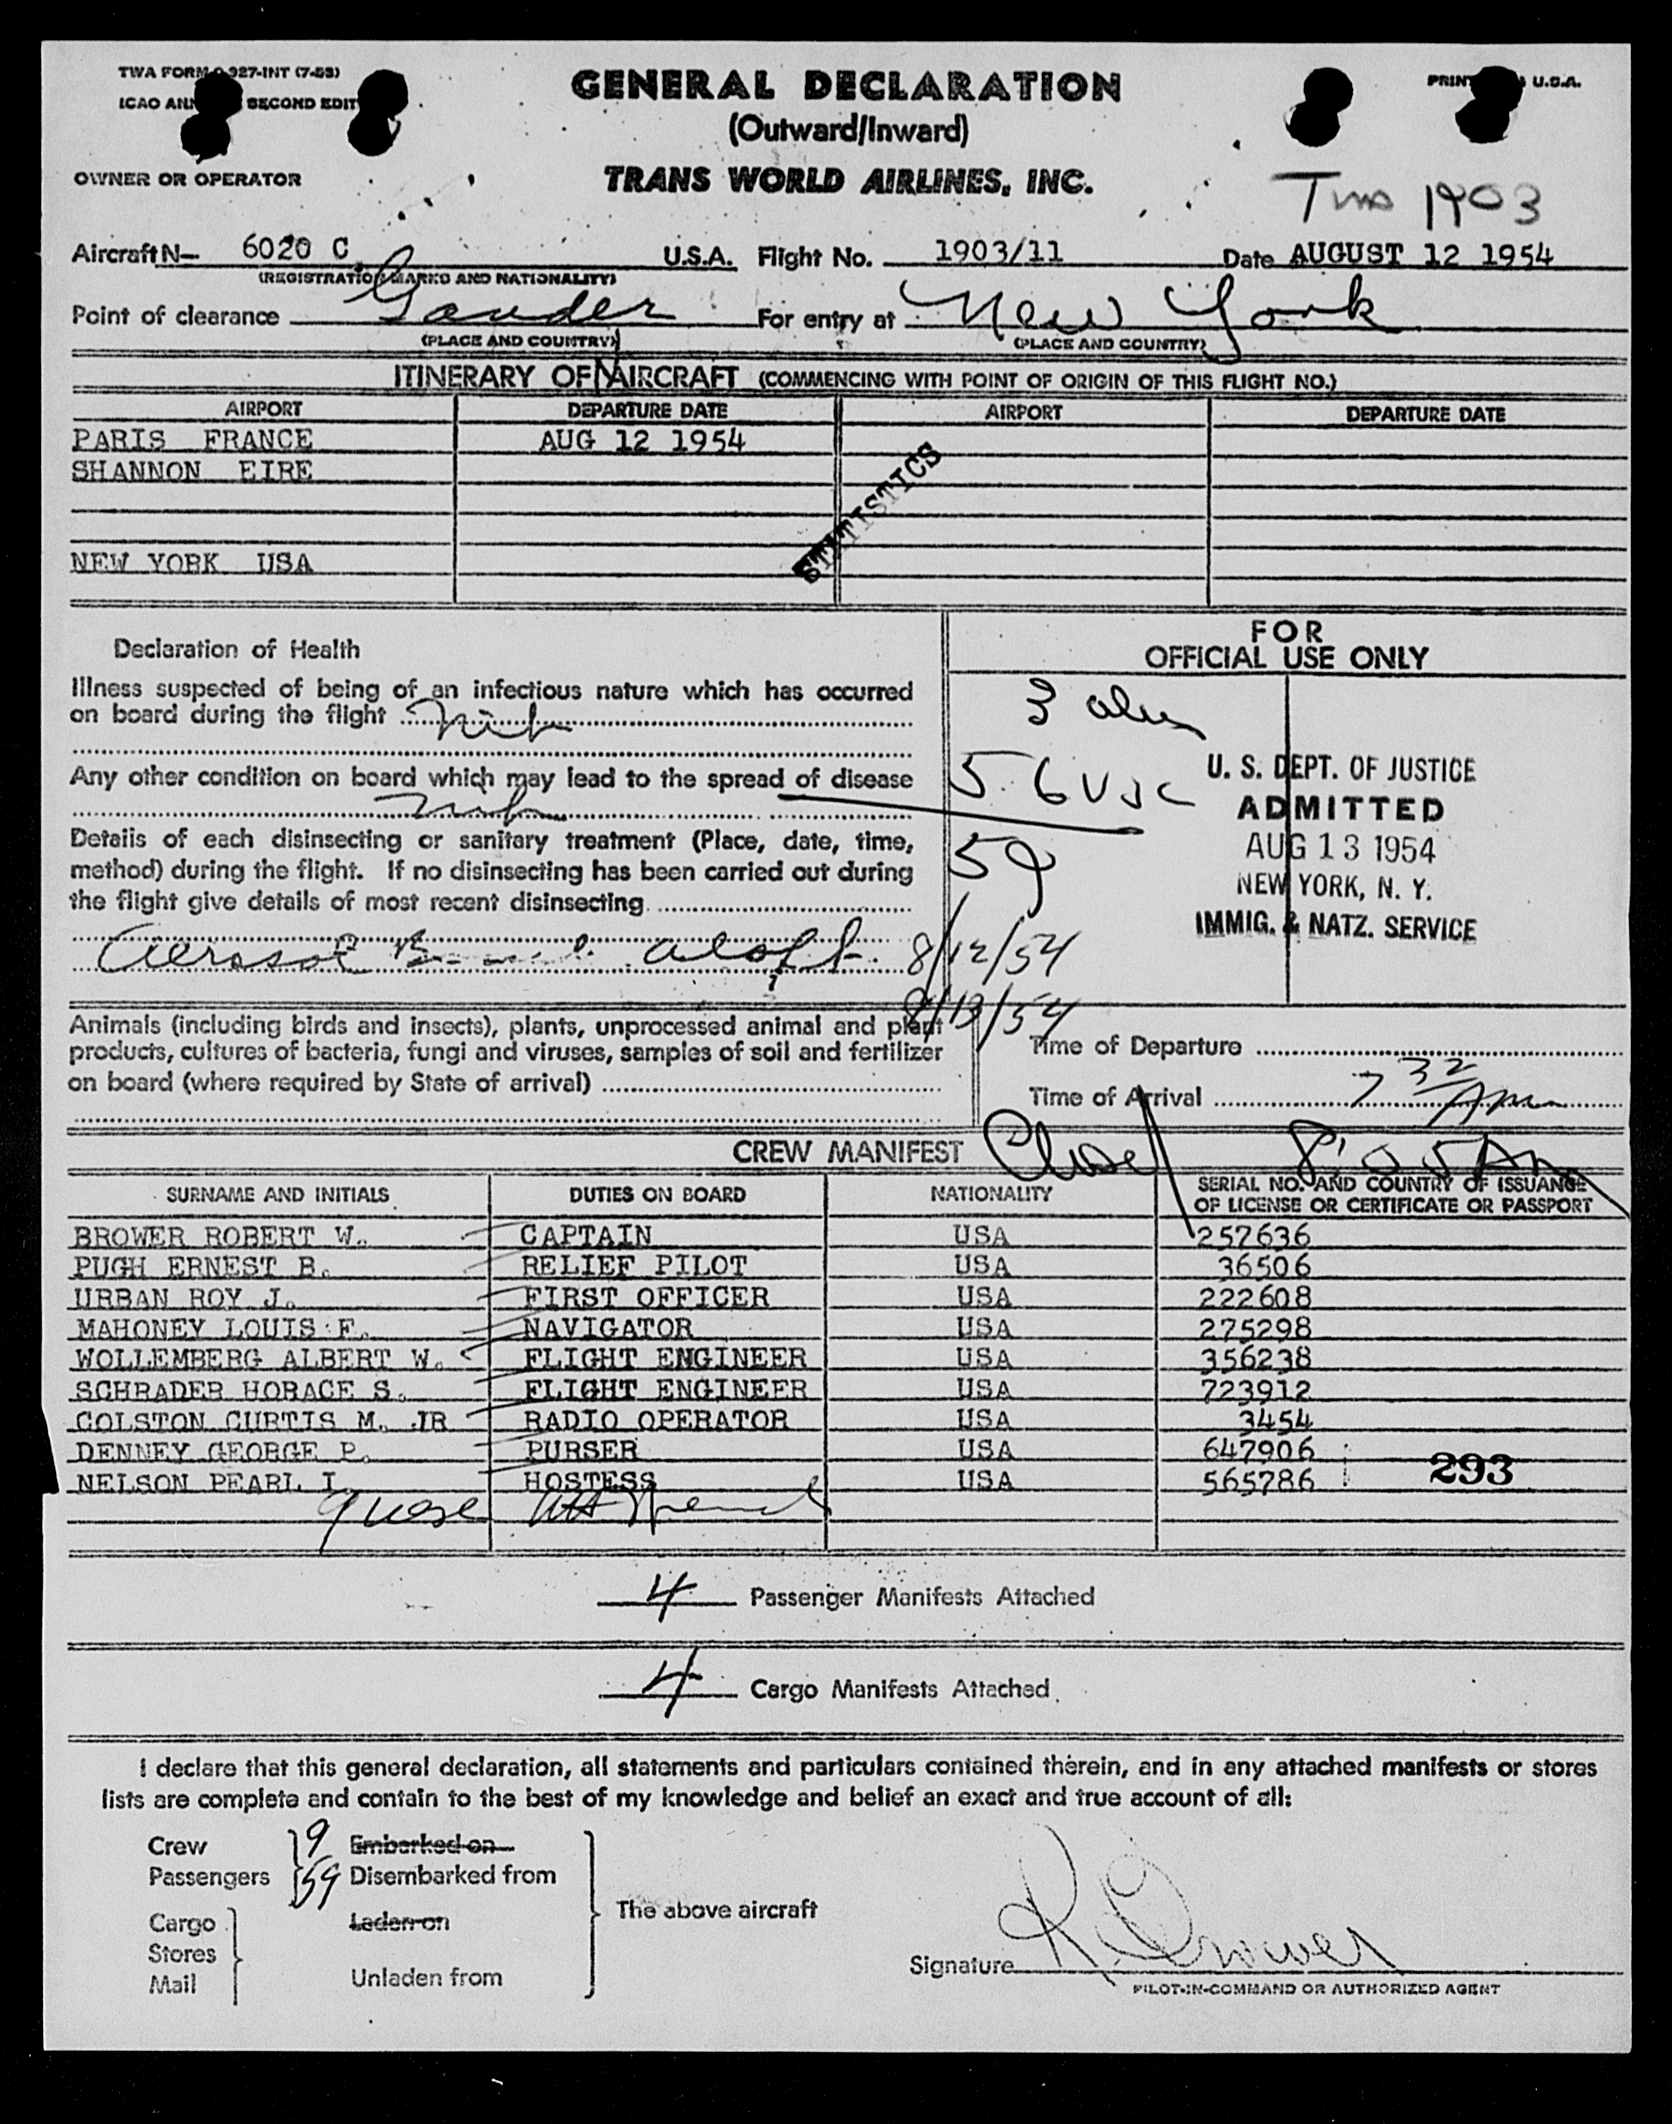 TWA FORM 927-INT (7-53)
ICAO SECOND
GENERAL DECLARATION
(Outward/Inward)
TRANS WORLD AIRLINES, INC.
U.S.A.
OWNER OR OPERATOR
1903
Aircraft N— 6020 C U.S.A. Flight No. 1903/11 Date AUGUST 12 1954
(REGISTRATION MARKS AND NATIONALITY)
Point of clearance Gander For entry at New York
(PLACE AND COUNTRY) (PLACE AND COUNTRY)
ITINERARY OF AIRCRAFT (COMMENCING WITH POINT OF ORIGIN OF THIS FLIGHT NO.)
AIRPORT DEPARTURE DATE AIRPORT DEPARTURE DATE
PARIS FRANCE AUG 12 1954
SHANNON EIRE
STATISTICS
NEW YORK USA
Declaration of Health
Illness suspected of being of an infectious nature which has occurred
on board during the flight
Any other condition on board which may lead to the spread of disease
Details of each disinsecting or sanitary treatment (Place, date, time,
method) during the flight. If no disinsecting has been carried out during
the flight give details of most recent disinsecting
Aerosol aloft. 8/12/54
8/13/54
FOR
OFFICIAL USE ONLY
3
56 USC
59
U. S. DEPT. OF JUSTICE
ADMITTED
AUG 13 1954
NEW YORK, N. Y.
IMMIG. & NATZ. SERVICE
Animals (including birds and insects), plants, unprocessed animal and plant
products, cultures of bacteria, fungi and viruses, samples of soil and fertilizer
on board (where required by State of arrival)
Time of Departure
Time of Arrival 7 32 Am
CREW MANIFEST 8:05 Am
SURNAME AND INITIALS DUTIES ON BOARD NATIONALITY SERIAL NO. AND COUNTRY OF ISSUANCE
OF LICENSE OR CERTIFICATE OR PASSPORT
BROWER ROBERT W. CAPTAIN USA 257636
PUGH ERNEST B. RELIEF PILOT USA 36506
URBAN ROY J. FIRST OFFICER USA 222608
MAHONEY LOUIS F. NAVIGATOR USA 275298
WOLLEMBERG ALBERT W. FLIGHT ENGINEER USA 356238
SCHRADER HORACE S. FLIGHT ENGINEER USA 723912
COLSTON CURTIS M. JR RADIO OPERATOR USA 3454
DENNEY GEORGE P. PURSER USA 647906
NELSON PEARL I. HOSTESS USA 565786
293
4 Passenger Manifests Attached
4 Cargo Manifests Attached
I declare that this general declaration, all statements and particulars contained therein, and in any attached manifests or stores
lists are complete and contain to the best of my knowledge and belief an exact and true account of all:
Crew 9 Embarked on
Passengers 59 Disembarked from
The above aircraft
Cargo Laden on
Stores
Mail Unladen from
Signature R Brower
PILOT-IN-COMMAND OR AUTHORIZED AGENT